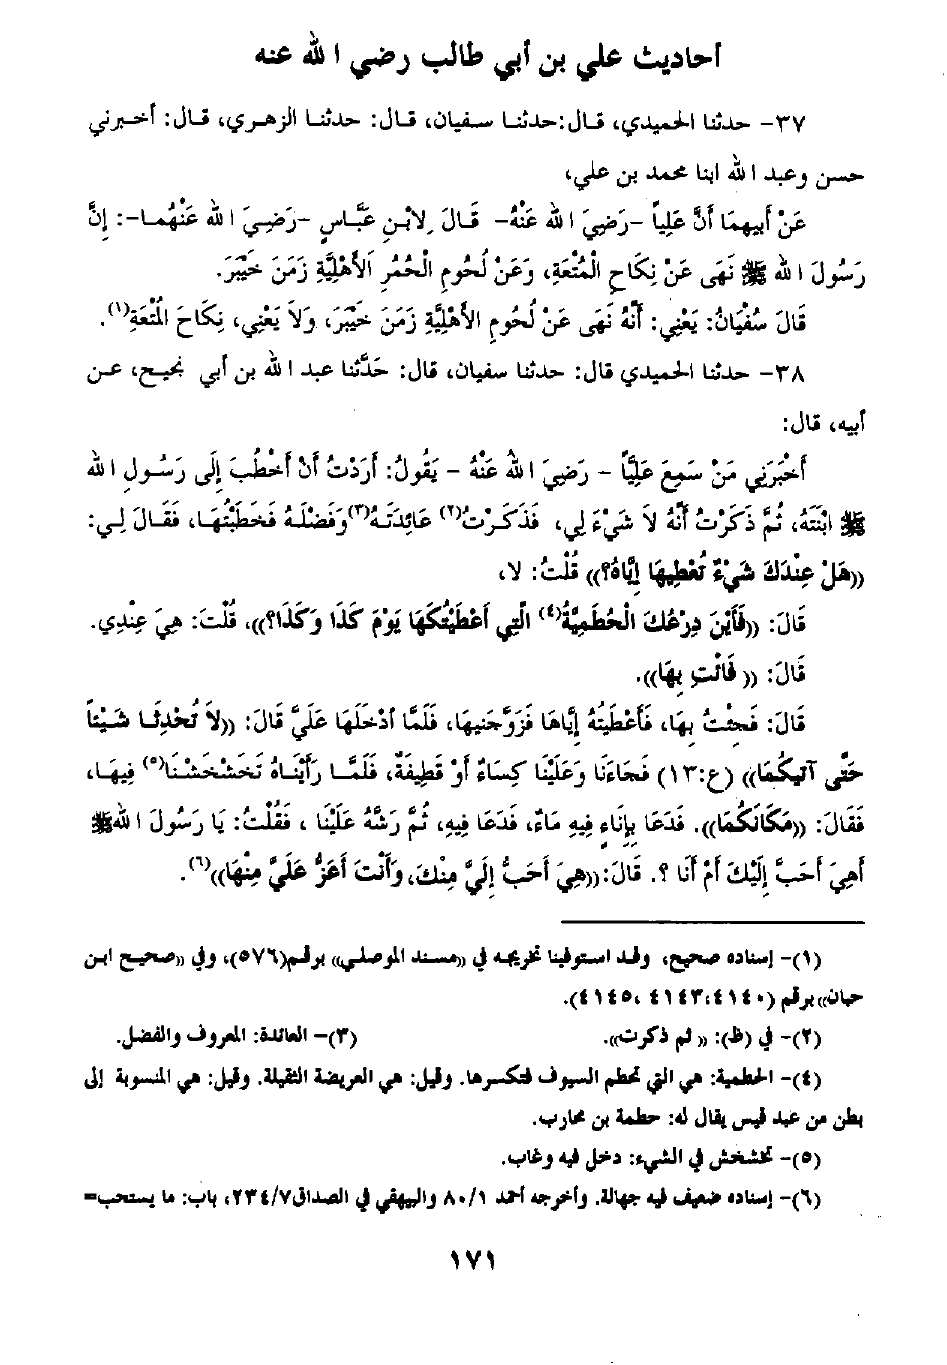 أحاديث علي بن أبي طالب رضي الله عنه
٣٧- حدثنا الحميدي، قال:حدثنا سفيان، قال: حدثنا الزهري، قال: أخبرني
حسن وعبد الله ابنا محمد بن علي،
عَنْ أَبِيهِمَا أَنَّ عَلِيًّا -رَضِيَ اللهُ عَنْهُ- قَالَ لِابْنِ عَبَّاسٍ -رَضِيَ اللهُ عَنْهُمَا-: إِنَّ
رَسُولَ اللهِ ﷺ نَهَى عَنْ نِكَاحِ الْمُتْعَةِ، وَعَنْ لُحُومِ الْحُمُرِ الَأهْلِيَّةِ زَمَنَ خَيْبَرَ.
قَالَ سُفْيَانُ: يَعْنِي: أَنَّهُ نَهَى عَنْ لُحُومِ الأَهْلِيَّةِ زَمَنَ خَيْبَرَ، وَلاَ يَعْنِي، نِكَاحَ الْمُتْعَةِ(١).
٣٨- حدثنا الحميدي قال: حدثنا سفيان، قال: حَدَّثنا عبد الله بن أبي نجيح، عن
أبيه، قال:
أَخْبَرَنِي مَنْ سَمِعَ عَلِيًّا - رَضِيَ اللهُ عَنْهُ - يَقُولُ: أَرَدْتُ أَنْ أَخْطُبَ إِلَى رَسُولِ اللهِ
ﷺ ابْنَتَهُ، ثُمَّ ذَكَرْتُ أَنَّهُ لاَ شَيْءَ لِي، فَذَكَرْتُ(٢) عَائِدَتَهُ(٣)وَفَضْلَهُ فَخَطَبْتُهَا، فَقَالَ لِي:
((هَلْ عِنْدَكَ شَيْءٌ تُعْطِيهَا إِيَّاهُ؟)) قُلْتُ: لا،
قَالَ: ((فَأَيْنَ دِرْعُكَ الْحُطَمِيَّةُ(٤) الَّتِي أَعْطَيْتُكَهَا يَوْمَ كَذَا وَكَذَا؟))، قُلْتَ: هِيَ عِنْدِي.
قَالَ: (( فَائْتِ بِهَا)).
قَالَ: فَجِئْتُ بِهَا، فَأَعْطَيْتُهُ إِيَّاهَا فَزَوَّجَنِيهَا، فَلَمَّا أدْخَلَهَا عَلَيَّ قَالَ: ((لاَ تُحْدِثَا شَيْئاً
حَتَّى آتِيَكُمَا)) (ع:١٣) فَجَاءَنَا وَعَلَيْنَا كِسَاءٌ أَوْ قَطِيفَةٌ، فَلَمَّا رَأَيْنَاهُ تَخَشْخَشْنَا(٥) فِيهَا،
فَقَالَ: ((مَكَانَكُمَا)). فَدَعَا بِإِنَاءٍ فِيهِ مَاءٌ، فَدَعَا فِيهِ، ثُمَّ رَشَّهُ عَلَيْنَا ، فَقُلْتُ: يَا رَسُولَ اللهِ ﷺ
أَهِيَ أَحَبُّ إِلَيْكَ أَمْ أَنَا ؟. قَالَ:((هِيَ أَحَبُّ إِلَيَّ مِنْكَ، وَأَنْتَ أَعَزُّ عَلَيَّ مِنْهَا))(٦).
(١)- إسناده صحيح، وقد استوفينا تخريجه في ((مسند الموصلي)) برقم(٥٧٦)، وفي ((صحيح ابن
حبان)) برقم (٤١٤٠،٤١٤٣، ٤١٤٥).
(٢)- في (ظ): (( ثم ذكرت)). (٣)- العائدة: المعروف والفضل.
(٤)- الحطمية: هي التي تحطم السيوف فتكسرها. وقيل: هي العريضة الثقيلة. وقيل: هي المنسوبة إلى
بطن من عبد قيس يقال له: حطمة بن محارب.
(٥)- تخشخش في الشيء: دخل فيه وغاب.
(٦)- إسناده ضعيف فيه جهالة. وأخرجه أحمد ٨٠/١ والبيهقي في الصداق٢٣٤/٧، باب: ما يستحب=
١٧١